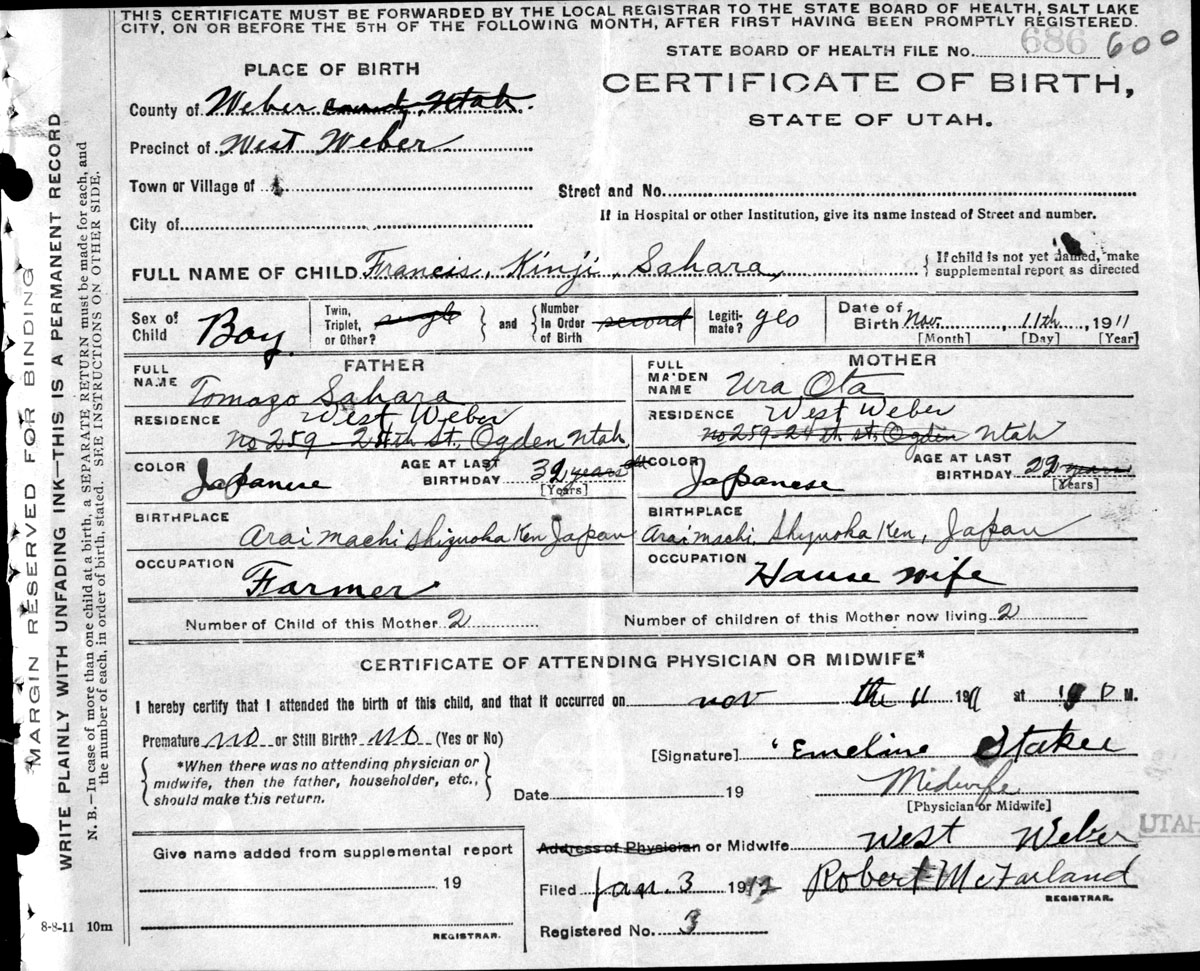 THIS CERTIFICATE MUST BE FORWARDED BY THE LOCAL REGISTRAR TO THE STATE BOARD OF HEALTH, SALT LAKE
CITY, ON OR BEFORE THE 5TH OF THE FOLLOWING MONTH, AFTER FIRST HAVING BEEN PROMPTLY REGISTERED.
STATE BOARD OF HEALTH FILE No. 686 600
PLACE OF BIRTH
CERTIFICATE OF BIRTH,
STATE OF UTAH.
County of Weber County, Utah.
Precinct of West Weber
Town or Village of
Street and No.
City of
If in Hospital or other Institution, give its name instead of Street and number.
FULL NAME OF CHILD Francis, Kinji, Sahara, { If child is not yet named, make
supplemental report as directed
Sex of Child Boy.
Twin, Triplet, or Other? single } and { Number In Order of Birth second
Legiti-mate? yes
Date of Birth Nov. 11th, 1911
[Month] [Day] [Year]
FATHER
FULL NAME Tomago Sahara
RESIDENCE West Weber
No 259 - 24th St, Ogden Utah
COLOR Japanese
AGE AT LAST BIRTHDAY 32 years
[Years]
BIRTHPLACE
Arai machi Shizuoka Ken Japan
OCCUPATION
Farmer
MOTHER
FULL MAIDEN NAME Ura Ota
RESIDENCE West Weber
No 259-24th st, Ogden Utah
COLOR Japanese
AGE AT LAST BIRTHDAY 22 years
[Years]
BIRTHPLACE
Arai machi, Shizuoka Ken, Japan
OCCUPATION
Hause wife
Number of Child of this Mother 2
Number of children of this Mother now living 2
CERTIFICATE OF ATTENDING PHYSICIAN OR MIDWIFE*
I hereby certify that I attended the birth of this child, and that it occurred on nov the 11 1911 at M.
Premature no or Still Birth? no (Yes or No)
{ *When there was no attending physician or
midwife, then the father, householder, etc.,
should make this return. }
[Signature] Emeline Staker
Date 19
Midwife
[Physician or Midwife]
Address of Physician or Midwife West Weber
UTAH
Filed Jan. 3 1912 Robert McFarland
REGISTRAR.
Registered No. 3
Give name added from supplemental report
19
REGISTRAR.
8-8-11 10m
MARGIN RESERVED FOR BINDING
WRITE PLAINLY WITH UNFADING INK—THIS IS A PERMANENT RECORD
N. B.—In case of more than one child at a birth, a SEPARATE RETURN must be made for each, and
the number of each, in order of birth, stated. SEE INSTRUCTIONS ON OTHER SIDE.